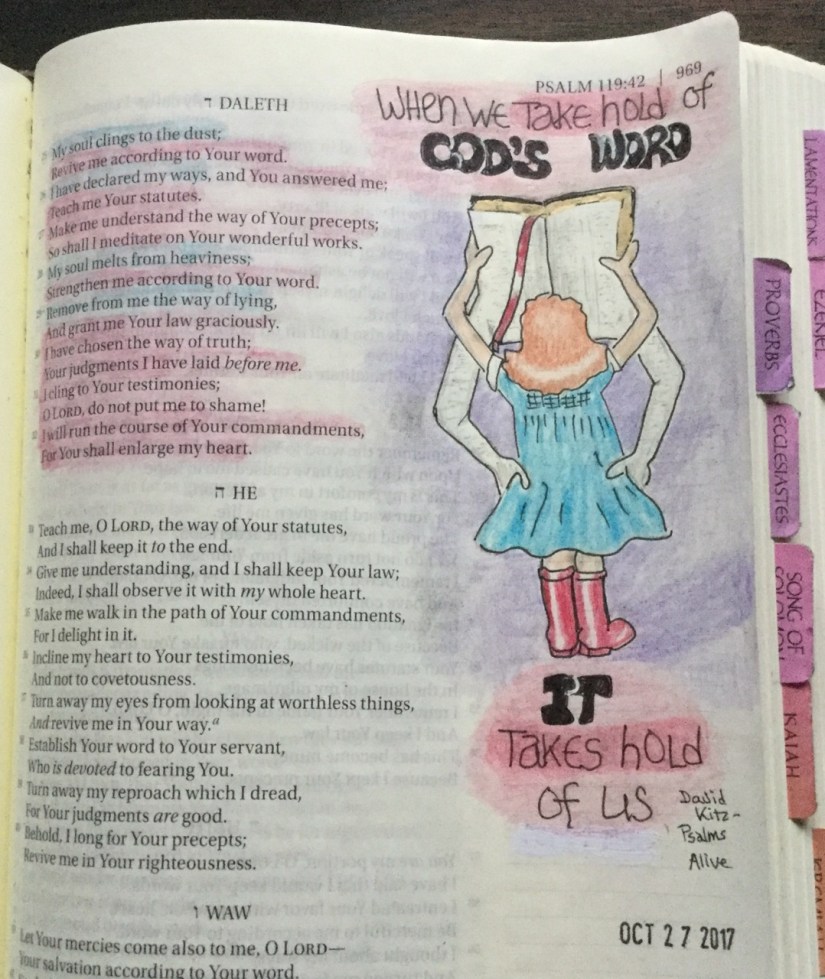 PSALM 119:42 | 969
ד DALETH
25 My soul clings to the dust;
Revive me according to Your word.
26 I have declared my ways, and You answered me;
Teach me Your statutes.
27 Make me understand the way of Your precepts;
So shall I meditate on Your wonderful works.
28 My soul melts from heaviness;
Strengthen me according to Your word.
29 Remove from me the way of lying,
And grant me Your law graciously.
30 I have chosen the way of truth;
Your judgments I have laid before me.
31 I cling to Your testimonies;
O LORD, do not put me to shame!
32 I will run the course of Your commandments,
For You shall enlarge my heart.
ה HE
33 Teach me, O LORD, the way of Your statutes,
And I shall keep it to the end.
34 Give me understanding, and I shall keep Your law;
Indeed, I shall observe it with my whole heart.
35 Make me walk in the path of Your commandments,
For I delight in it.
36 Incline my heart to Your testimonies,
And not to covetousness.
37 Turn away my eyes from looking at worthless things,
And revive me in Your way.a
38 Establish Your word to Your servant,
Who is devoted to fearing You.
39 Turn away my reproach which I dread,
For Your judgments are good.
40 Behold, I long for Your precepts;
Revive me in Your righteousness.
ו WAW
41 Let Your mercies come also to me, O LORD—
Your salvation according to Your word.
WHEN WE TAKE hOLD of
GOD'S WORD
IT
TAKES hOLD
Of US
David
Kitz-
Psalms
Alive
OCT 27 2017
PROVERBS
ECCLESIASTES
SONG OF
SOLOMON
ISAIAH
LAMENTATIONS
EZEKIEL